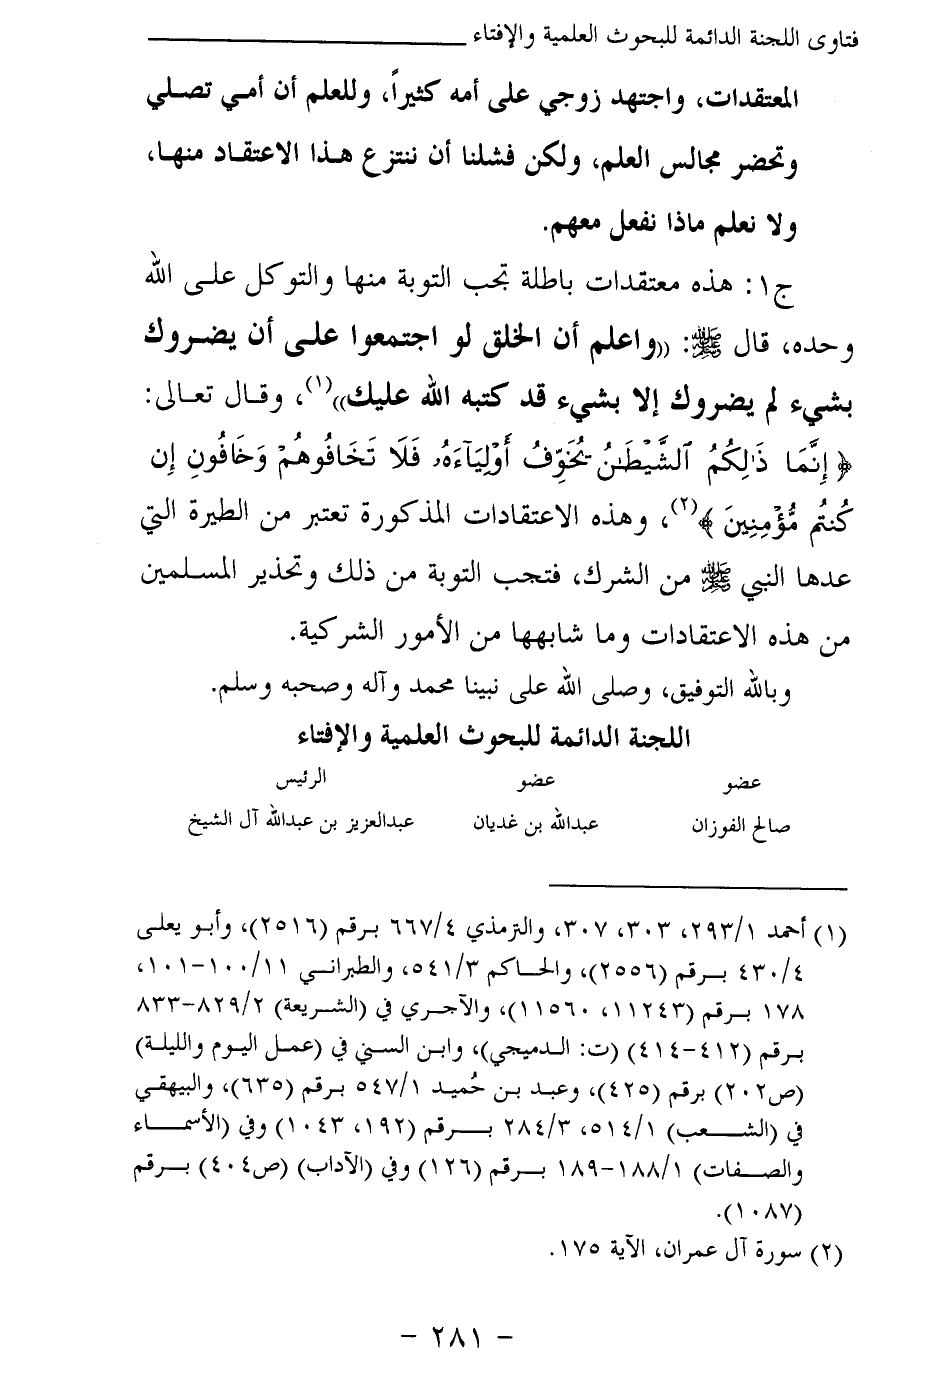 فتاوى اللجنة الدائمة للبحوث العلمية والإفتاء
المعتقدات، واجتهد زوجي على أمه كثيراً، وللعلم أن أمي تصلي
وتحضر مجالس العلم، ولكن فشلنا أن ننتزع هذا الاعتقاد منها،
ولا نعلم ماذا نفعل معهم.
ج١: هذه معتقدات باطلة تجب التوبة منها والتوكل على الله
وحده، قال ﷺ: «واعلم أن الخلق لو اجتمعوا على أن يضروك
بشيء لم يضروك إلا بشيء قد كتبه الله عليك»(١)، وقال تعالى:
﴿ إِنَّمَا ذَٰلِكُمُ ٱلشَّيْطَـٰنُ يُخَوِّفُ أَوْلِيَآءَهُۥ فَلَا تَخَافُوهُمْ وَخَافُونِ إِن
كُنتُم مُّؤْمِنِينَ ﴾(٢)، وهذه الاعتقادات المذكورة تعتبر من الطيرة التي
عدها النبي ﷺ من الشرك، فتجب التوبة من ذلك وتحذير المسلمين
من هذه الاعتقادات وما شابهها من الأمور الشركية.
وبالله التوفيق، وصلى الله على نبينا محمد وآله وصحبه وسلم.
اللجنة الدائمة للبحوث العلمية والإفتاء
عضو عضو الرئيس
صالح الفوزان عبدالله بن غديان عبدالعزيز بن عبدالله آل الشيخ
(١) أحمد ٢٩٣/١، ٣٠٣، ٣٠٧، والترمذي ٦٦٧/٤ برقم (٢٥١٦)، وأبو يعلى
٤٣٠/٤ برقم (٢٥٥٦)، والحاكم ٥٤١/٣، والطبراني ١٠٠/١١-١٠١،
١٧٨ برقم (١١٢٤٣، ١١٥٦٠)، والآجري في (الشريعة) ٨٢٩/٢-٨٣٣
برقم (٤١٢-٤١٤) (ت: الدميجي)، وابن السني في (عمل اليوم والليلة)
(ص٢٠٢) برقم (٤٢٥)، وعبد بن حُميد ٥٤٧/١ برقم (٦٣٥)، والبيهقي
في (الشعب) ٥١٤/١، ٢٨٤/٣ برقم (١٩٢، ١٠٤٣) وفي (الأسماء
والصفات) ١٨٨/١-١٨٩ برقم (١٢٦) وفي (الآداب) (ص٤٠٤) برقم
(١٠٨٧).
(٢) سورة آل عمران، الآية ١٧٥.
- ٢٨١ -